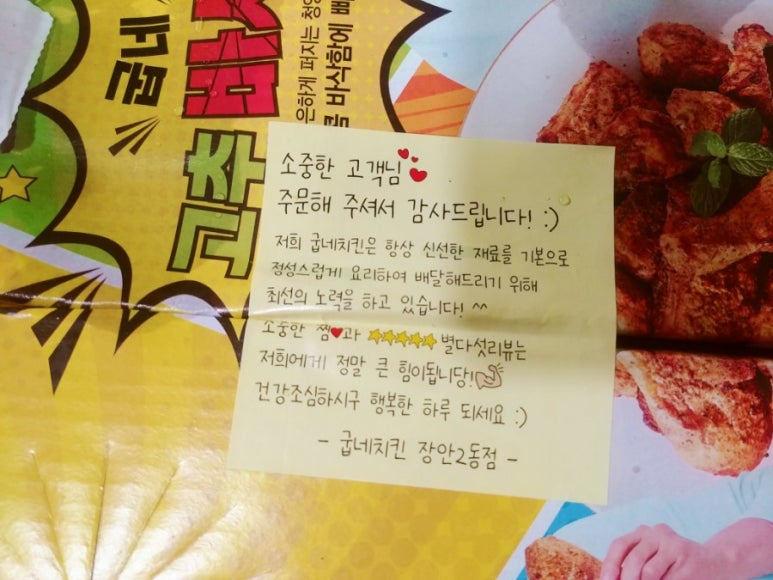 굽네
고추 바사
은하게 퍼지는 청양
바삭함에 빠
소중한 고객님
주문해 주셔서 감사드립니다! :)
저희 굽네치킨은 항상 신선한 재료를 기본으로
정성스럽게 요리하여 배달해드리기 위해
최선의 노력을 하고 있습니다! ^^
소중한 찜♥과 ★★★★★ 별다섯리뷰는
저희에게 정말 큰 힘이됩니당!
건강조심하시구 행복한 하루 되세요 :)
- 굽네치킨 장안2동점 -